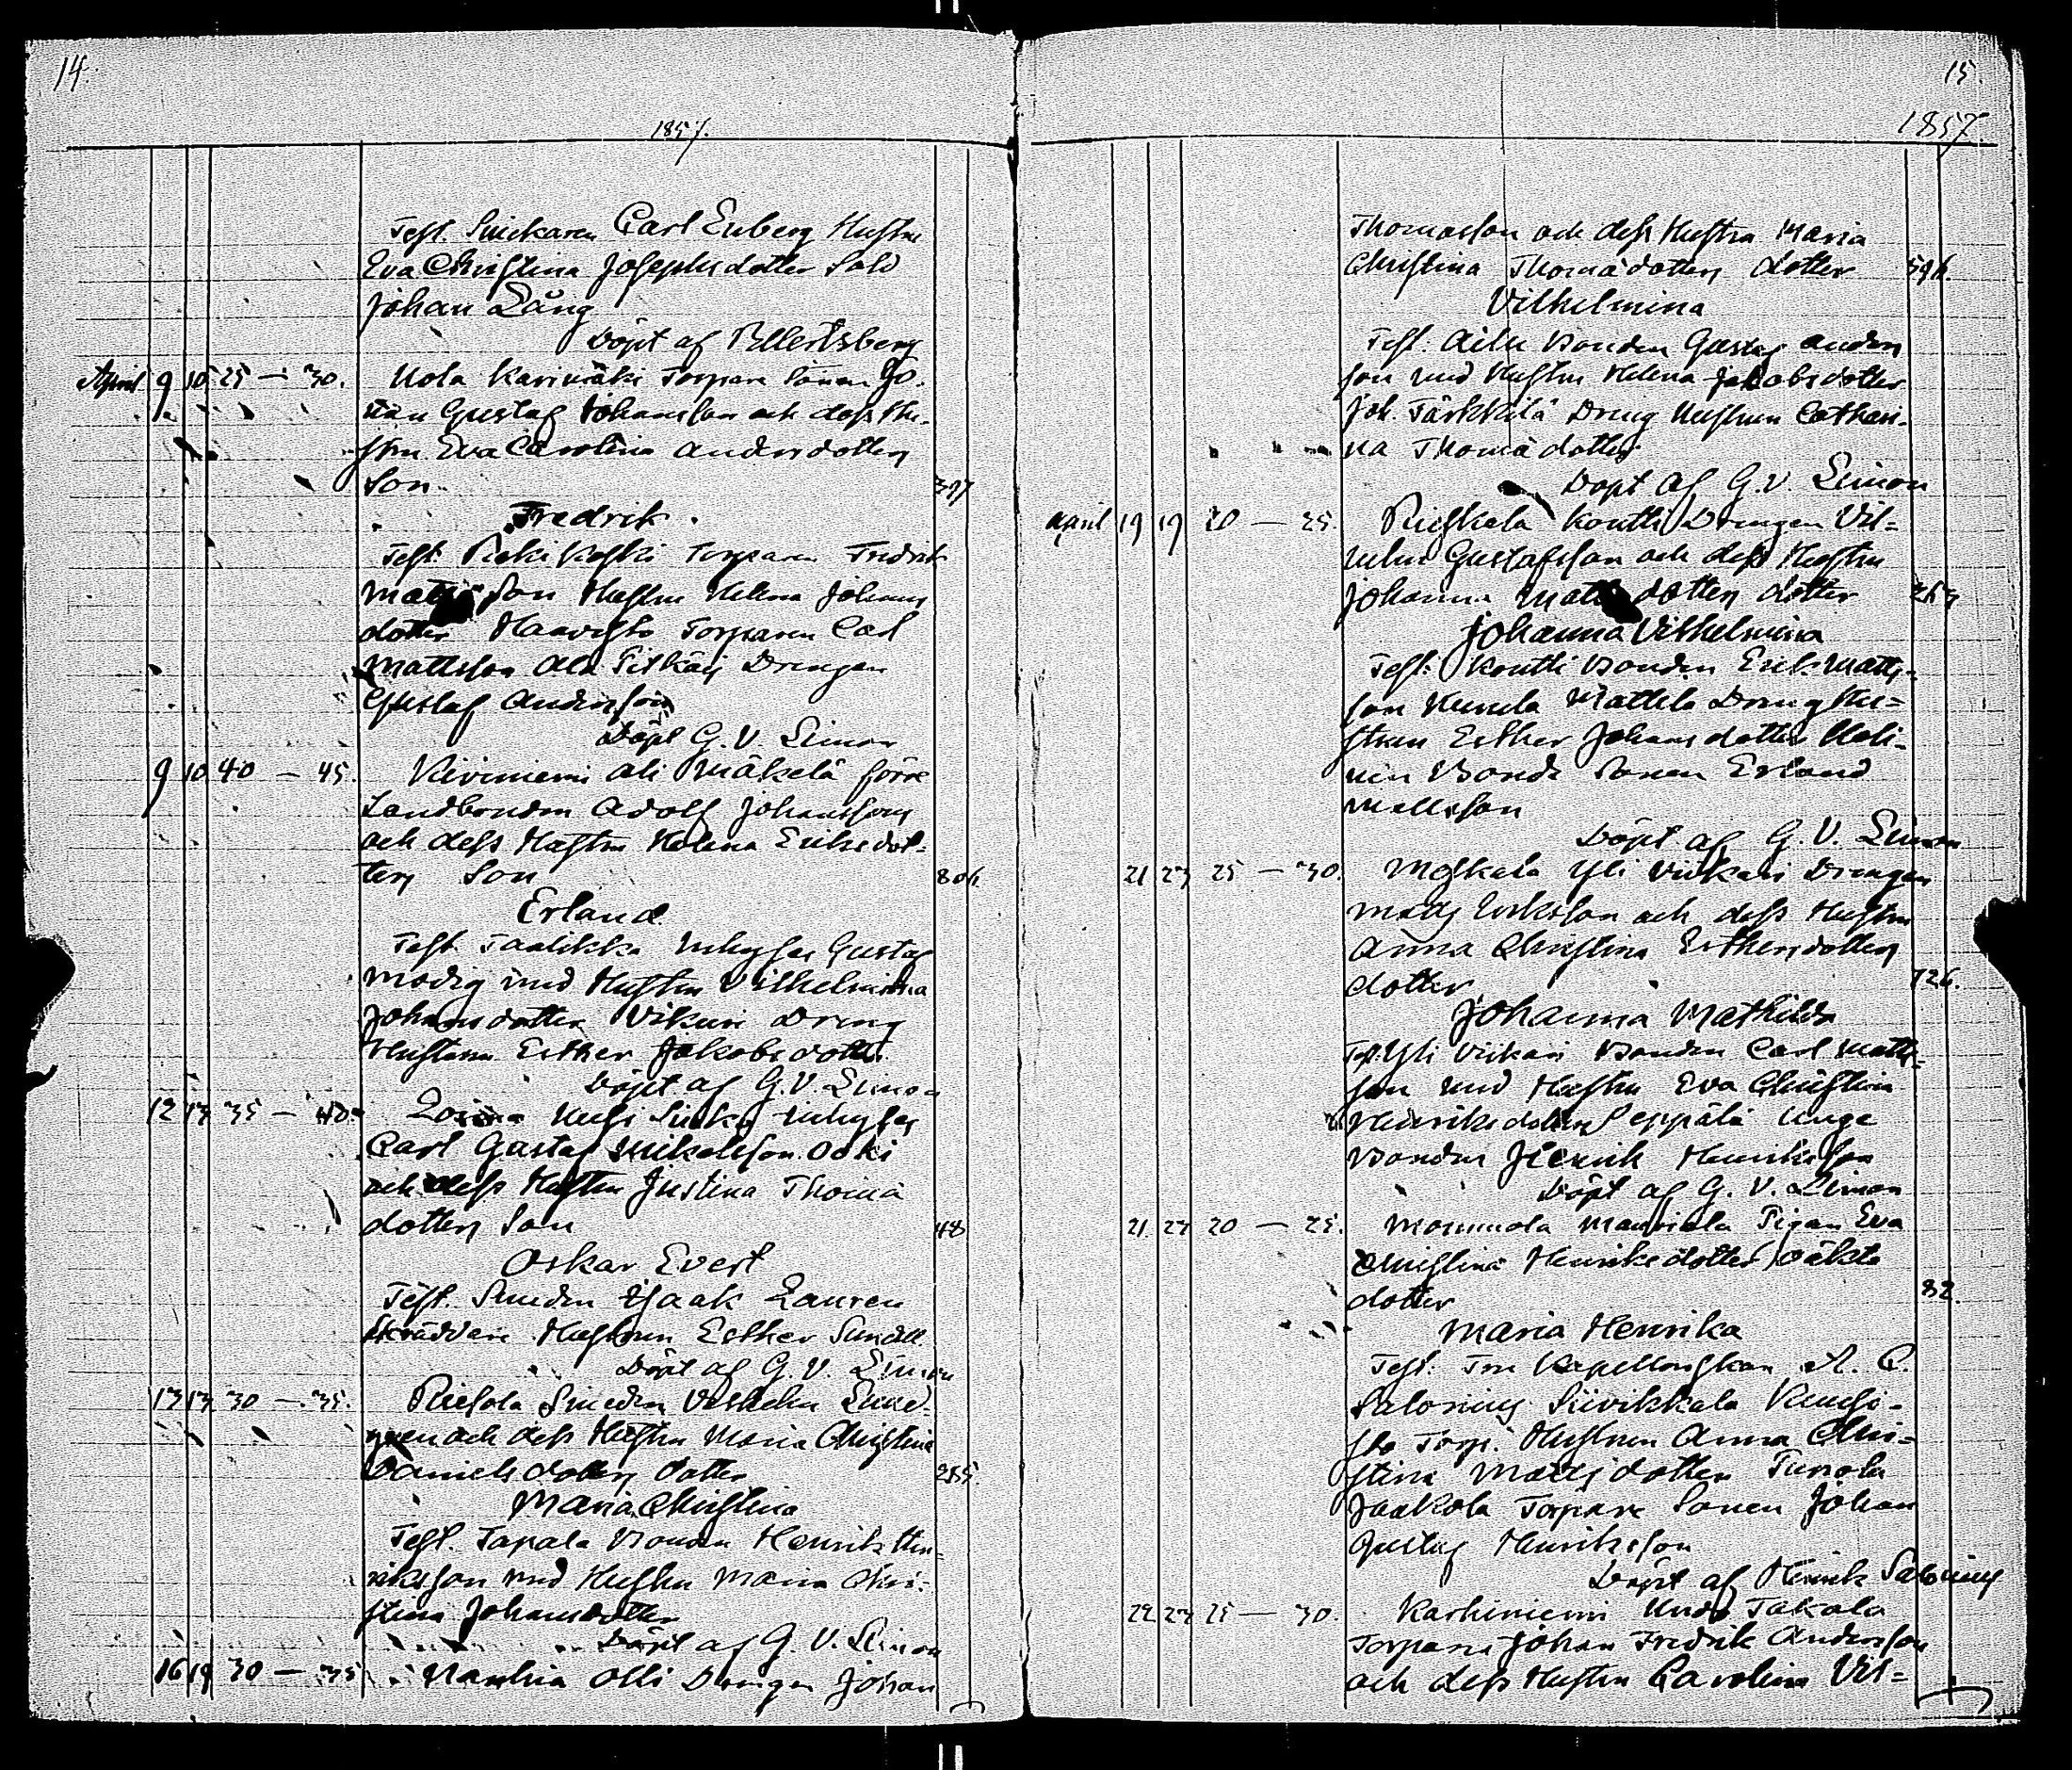 14.
1857.
Test. Snickaren Carl Enberg Hustru
Eva Christina Josephsdotter Sold
Johan Lång
Döpt af Ellertsberg
April 9 10 25 — 30. Karimäki Torpare Sonen Jo-
han Gustaf Johansson och dess Hu-
stru Eva Carolina Andersdotters
Son 397
Fredrik.
Test. Koski Torparen Fredrik
Matts son Hustru Helena Johans
dotter Haavisto Torparen Carl
Mattsson Ala Drengen
Gustaf Andersson
Döpt G. V. Limon
9 10 40 — 45. Kiviniemi Ali Mäkelä förre
Landbonden Adolf Johanssons
och dess Hustru Helena Eriksdot-
ters Son 806.
Erland.
Test. Inhyses Gustaf
Modig med Hustru Vilhelmina
Johansdotter Vikuri Dreng
Hustrun Esther Jakobsdotter.
Döpt af G. V. Limon
12 13 35 — 40. Loima Inhyses
Carl Gustaf Mikalsson
och dess Hustru Justina Thomä
dotters Son 48
Oskar Evert
Test. Smeden Isaak Lauren
Skräddare Hustrun Esther Sundell.
Döpt af G. V. Limon
13 13 30 — 35. Smeden Vilhelm Lind-
gren och dess Hustru Maria Christina
Daniels dotters dotter 285.
Maria Christina
Test. Tapala Bonden Henrik Hen-
riksson med Hustru Maria Chri-
stina Johansdotter
Döpt af G. V. Limon
16 19 30 — 35 Vanhia Olli Drengen Johan
15.
1857
Thomasson och dess Hustru Maria
Christina Thomädotters dotter 596.
Vilhelmina
Test: Bonden Gustaf Anders
son med Hustru Helena Jakobsdotter
Joh. Järkkilä Dreng Hustrun Cathari-
na Thomä dotter
Döpt af G. V. Limon
April 19 19 20 — 25. Rieskala Koutti Drengen Vil-
helm Gustafsson och dess Hustru
Johanna Matts dotters dotter
Johanna Vilhelmina
Test: Koutti Bonden Erik Matts-
son Mattila Dreng Hu-
strun Esther Johansdotter
Bonde Sonen Erland
Mattsson
Döpt af G. V. Limon
21 23 25 — 30. Moskala Yli Viikari Drengen
Matts Eriksson och dess Hustru
Anna Christina Esthersdotters
dotter 726.
Johanna Mathilda
Test. Yli Viikari Bonden Carl Matts-
son med Hustru Eva Christina
Henriksdotter Seppälä Unge
Bonden Henrik Henriksson
Döpt af G. V. Limon
21. 23 20 — 25. Mommola Mauriala Pigan Eva
Christina Henriksdotters oäkta
dotter 82.
Maria Henrika
Test: Fru Kapellanskan
Salonius Siivikkala
Torp. Hustrun Anna Chri-
stina Mattsdotter
Jaakola Torpare Sonen Johan
Gustaf Henriksson
Döpt af Henrik Salonius
22 23 25 — 30. Karhiniemi Takala
Torparen Johan Fredrik Andersson
och dess Hustru Carolina Vil-